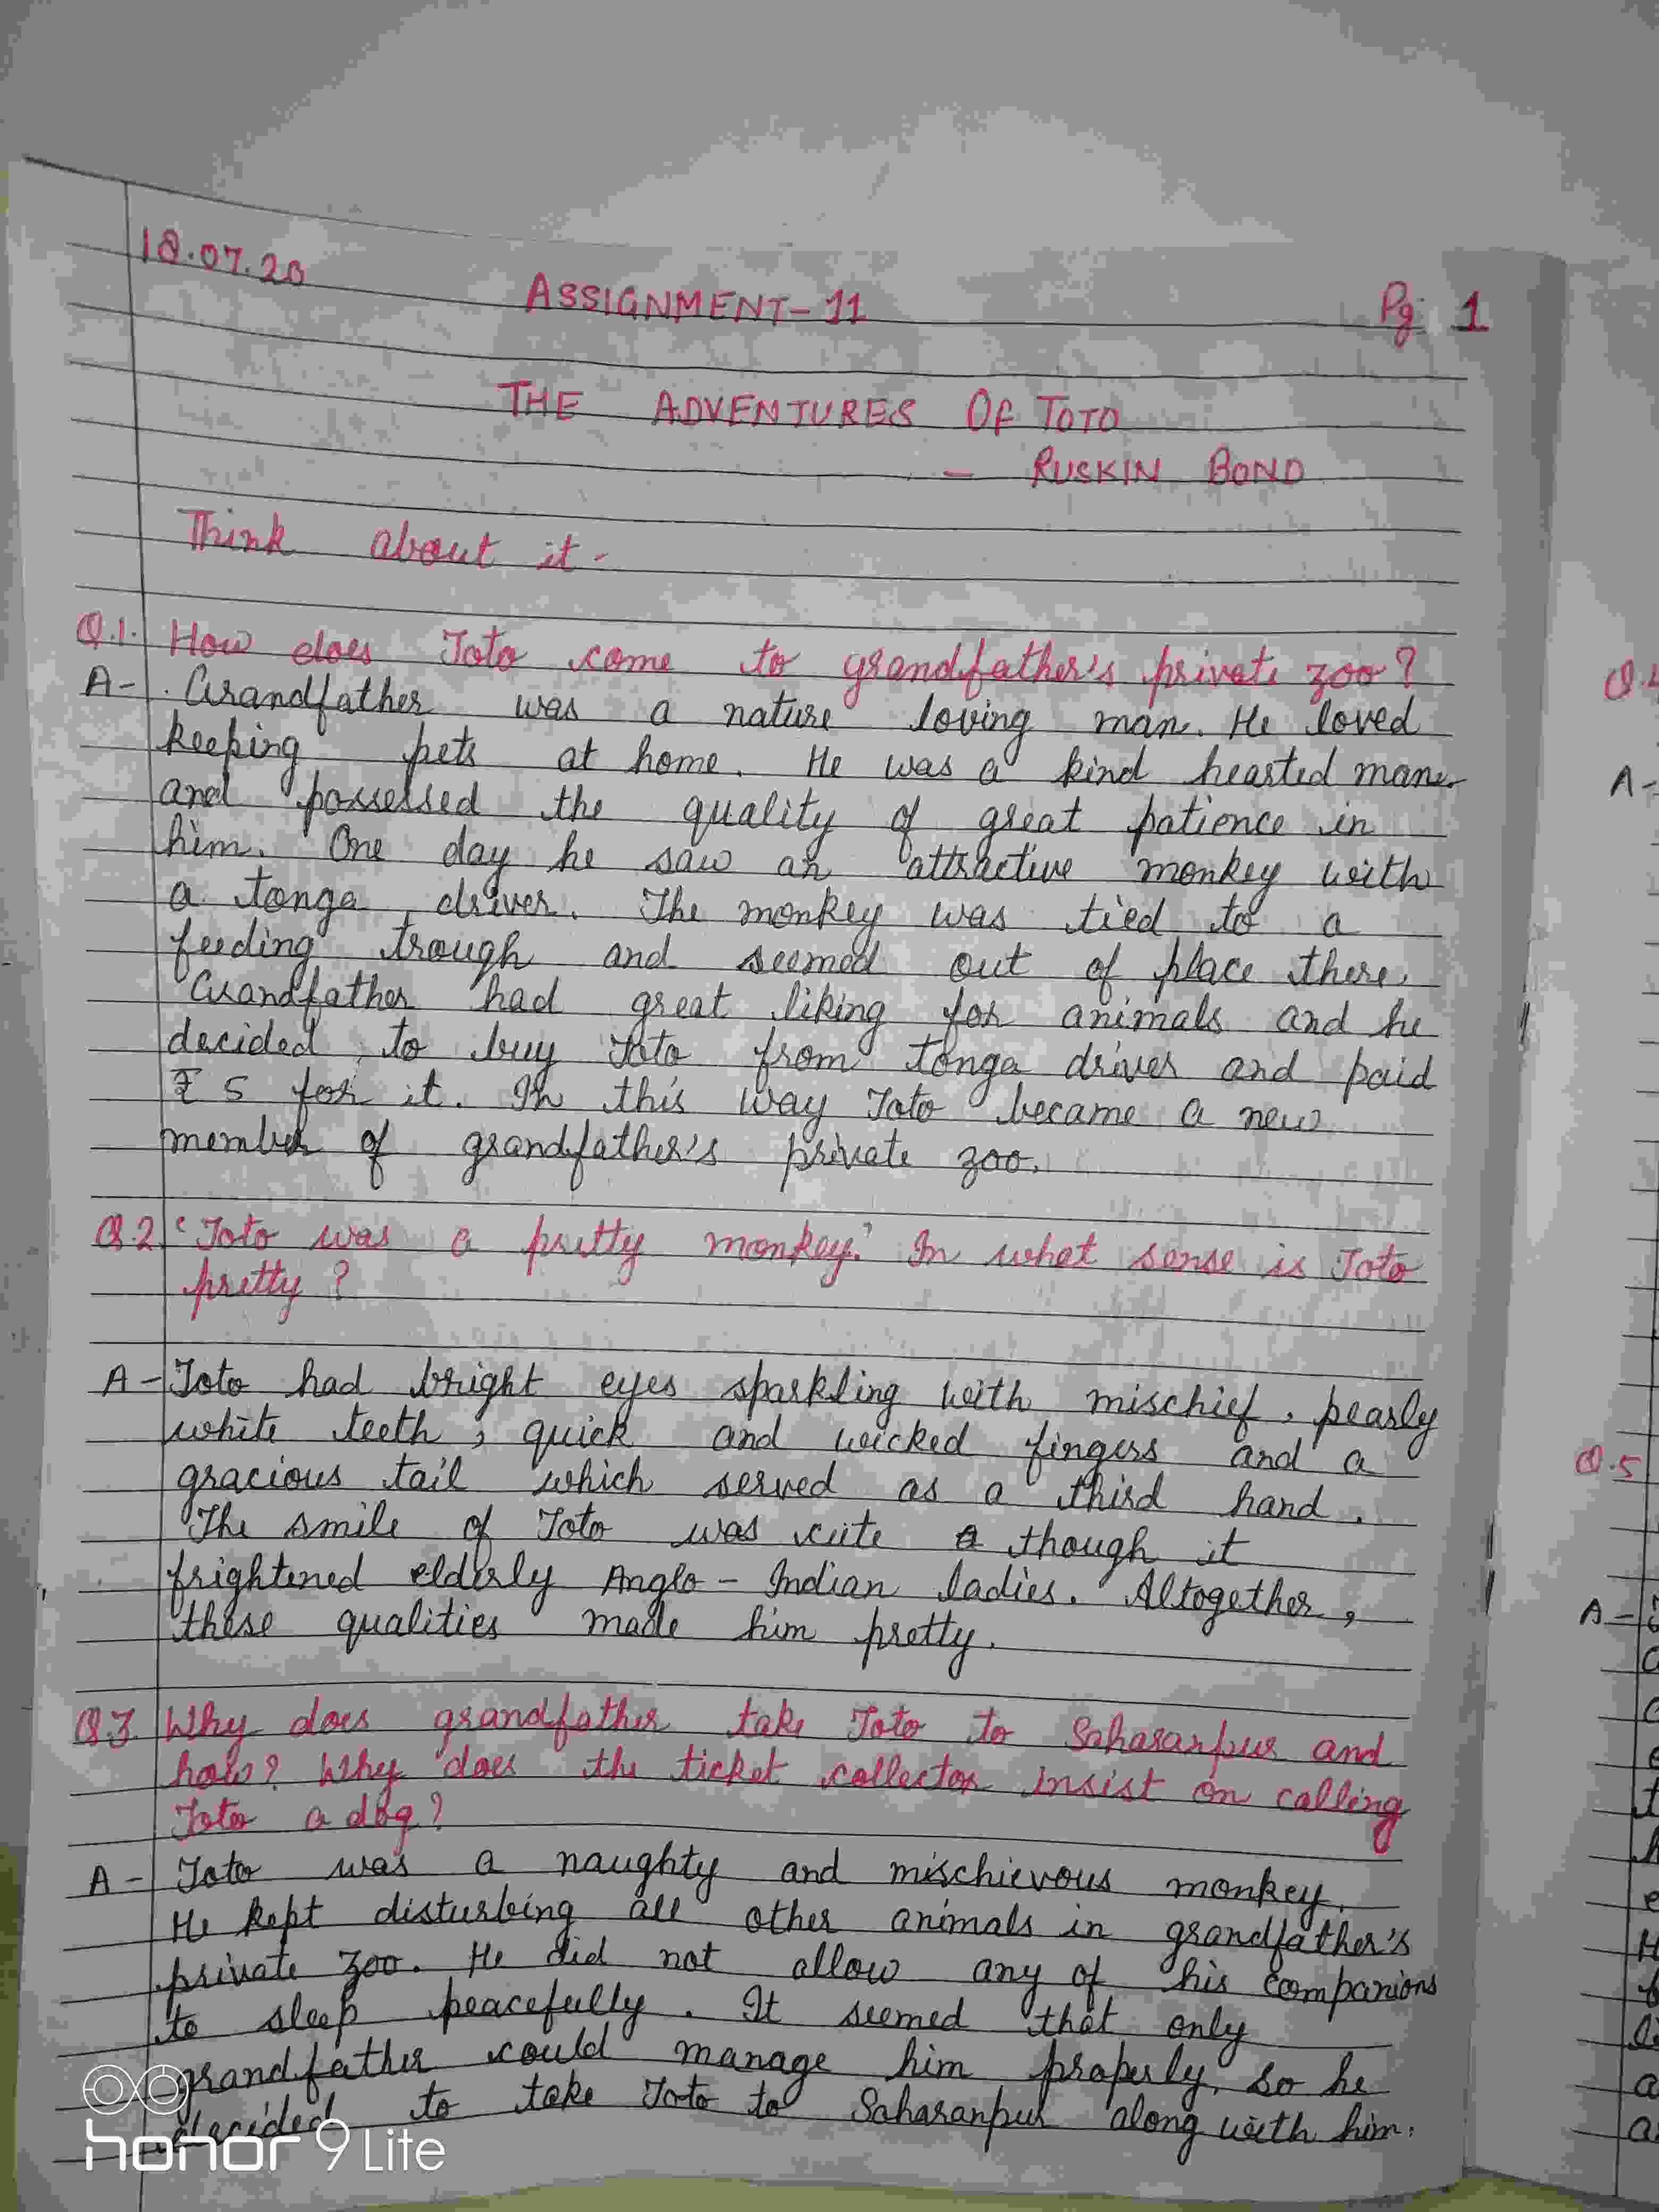 18.07.20
ASSIGNMENT-11 Pg 1
THE ADVENTURES OF TOTO
- RUSKIN BOND
Think about it -
Q.1. How does Toto come to grandfather's private zoo?
A- Grandfather was a nature loving man. He loved
keeping pets at home. He was a kind hearted man
and possessed the quality of great patience in
him. One day he saw an attractive monkey with
a tonga driver. The monkey was tied to a
feeding trough and seemed out of place there.
Grandfather had great liking for animals and he
decided to buy Toto from tonga driver and paid
₹ 5 for it. In this way Toto became a new
member of grandfather's private zoo.
Q.2 'Toto was a pretty monkey.' In what sense is Toto
pretty?
A- Toto had bright eyes sparkling with mischief, pearly
white teeth, quick and wicked fingers and a
gracious tail which served as a third hand.
The smile of Toto was cute though it
frightened elderly Anglo-Indian ladies. Altogether,
these qualities made him pretty.
Q.3 Why does grandfather take Toto to Saharanpur and
how? Why does the ticket collector insist on calling
Toto a dog?
A- Toto was a naughty and mischievous monkey.
He kept disturbing all other animals in grandfather's
private zoo. He did not allow any of his companions
to sleep peacefully. It seemed that only
grandfather could manage him properly, so he
decided to take Toto to Saharanpur along with him.
Q.5
A-
A-
honor 9 Lite